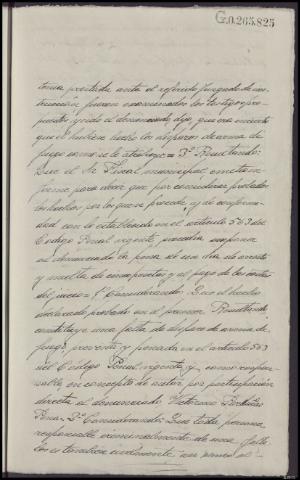 G.0.265.825
toria prestada ante el referido Juzgado de ins-
trucción fueron examinados los testigos pro-
puestos y oido el denunciado dijo que era incierto
que él hubiera hecho los disparos de arma de
fuego como se le atribuye = 3º Resultando:
Que el Sr. Fiscal municipal, emite in-
forme para decir que por considerar probados
los hechos por los que se procede, y de conformi-
dad con lo establecido en el artículo 563 del
Código Penal vigente, procedía imponer
al denunciado la pena de un dia de arresto
y multa de cinco pesetas y al pago de las costas
del juicio = 1º Considerando: Que el hecho
declarado probado en el primer Resultando
constituye una falta de disparo de arma de
fuego, prevista y penada en el artículo 563
del Código Penal vigente y como respon-
sable en concepto de autor por participación
directa el denunciado Victoriano
Pena = 2º Considerando: Que toda persona
responsable criminalmente de una falta
lo es también civilmente